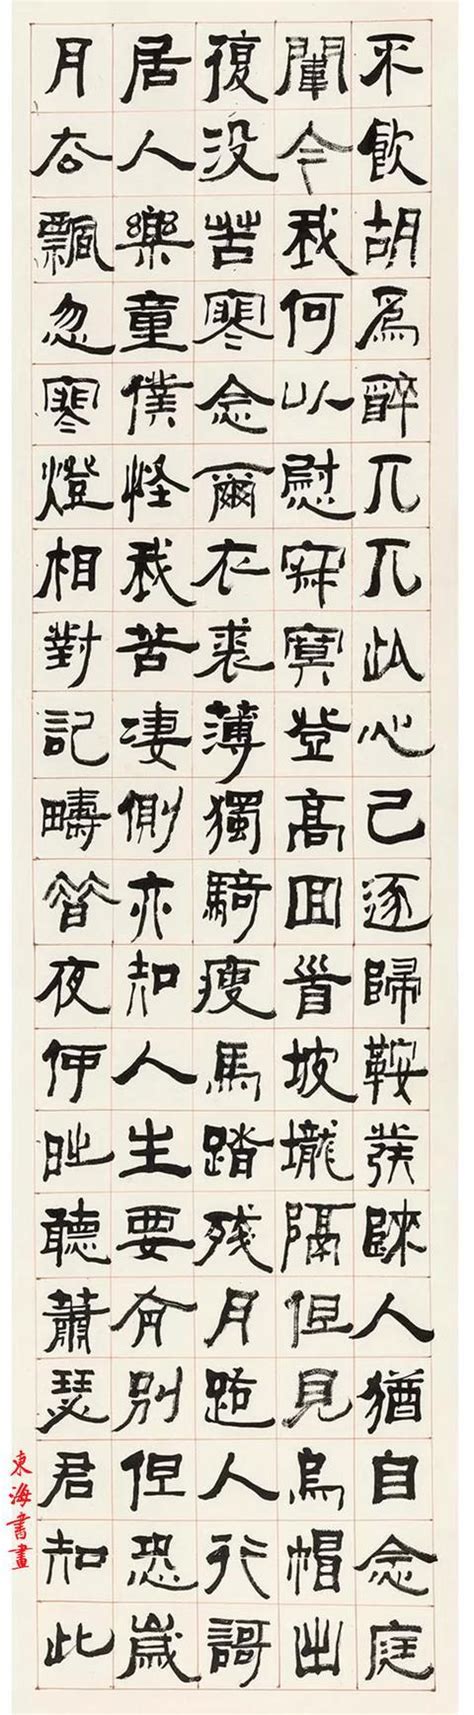 不飲胡爲醉兀兀此心已逐歸鞍發歸人猶自念庭
闈今我何以慰寂寞登高回首坡壠隔但見烏帽出
復没苦寒念爾衣裘薄獨騎瘦馬踏残月路人行謌
居人樂童僕怪我苦凄惻亦知人生要有別但恐歲
月去飄忽寒燈相對記疇昔夜何時聽蕭瑟君知此
東海書畫